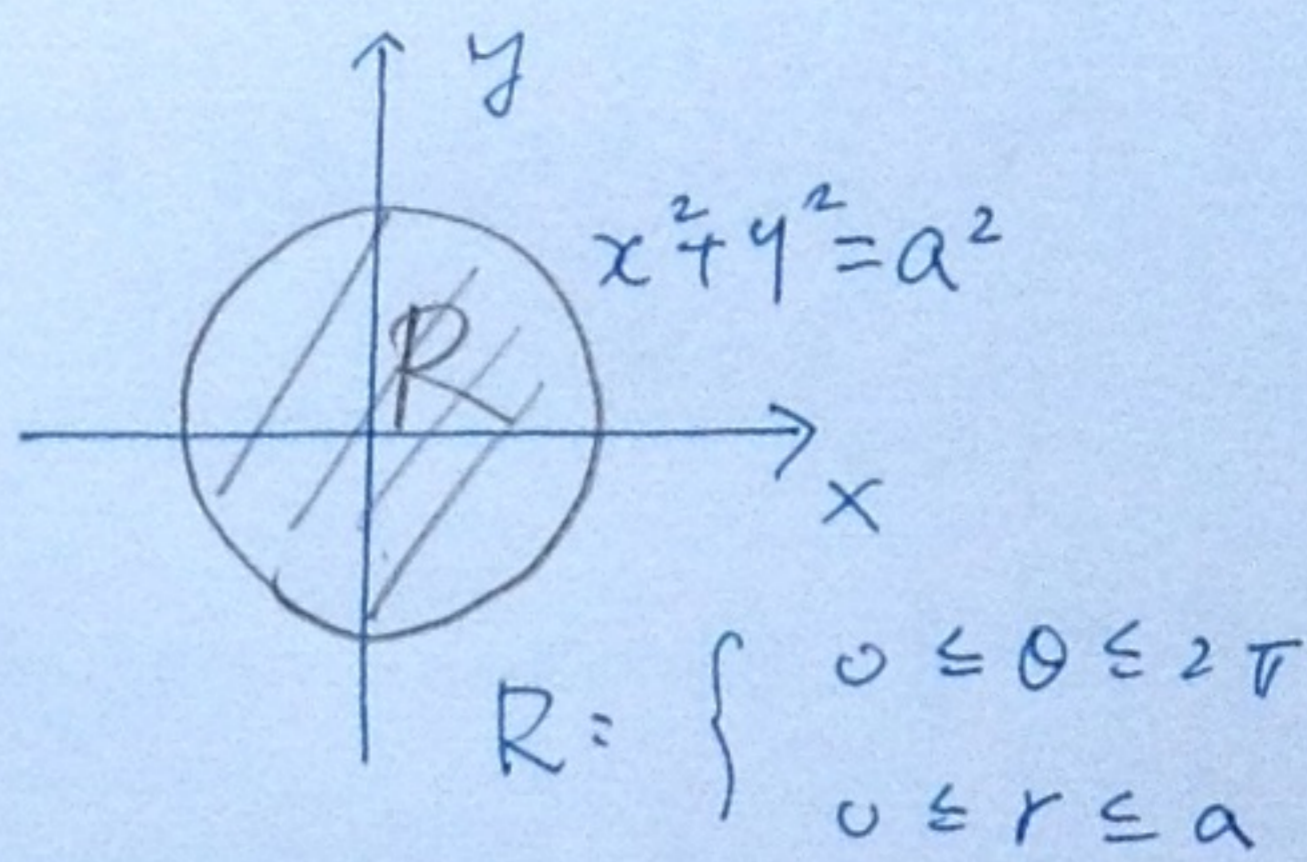 y
x²+y²=a²
R
x
R: { 0 ≦ θ ≦ 2π
0 ≦ r ≦ a